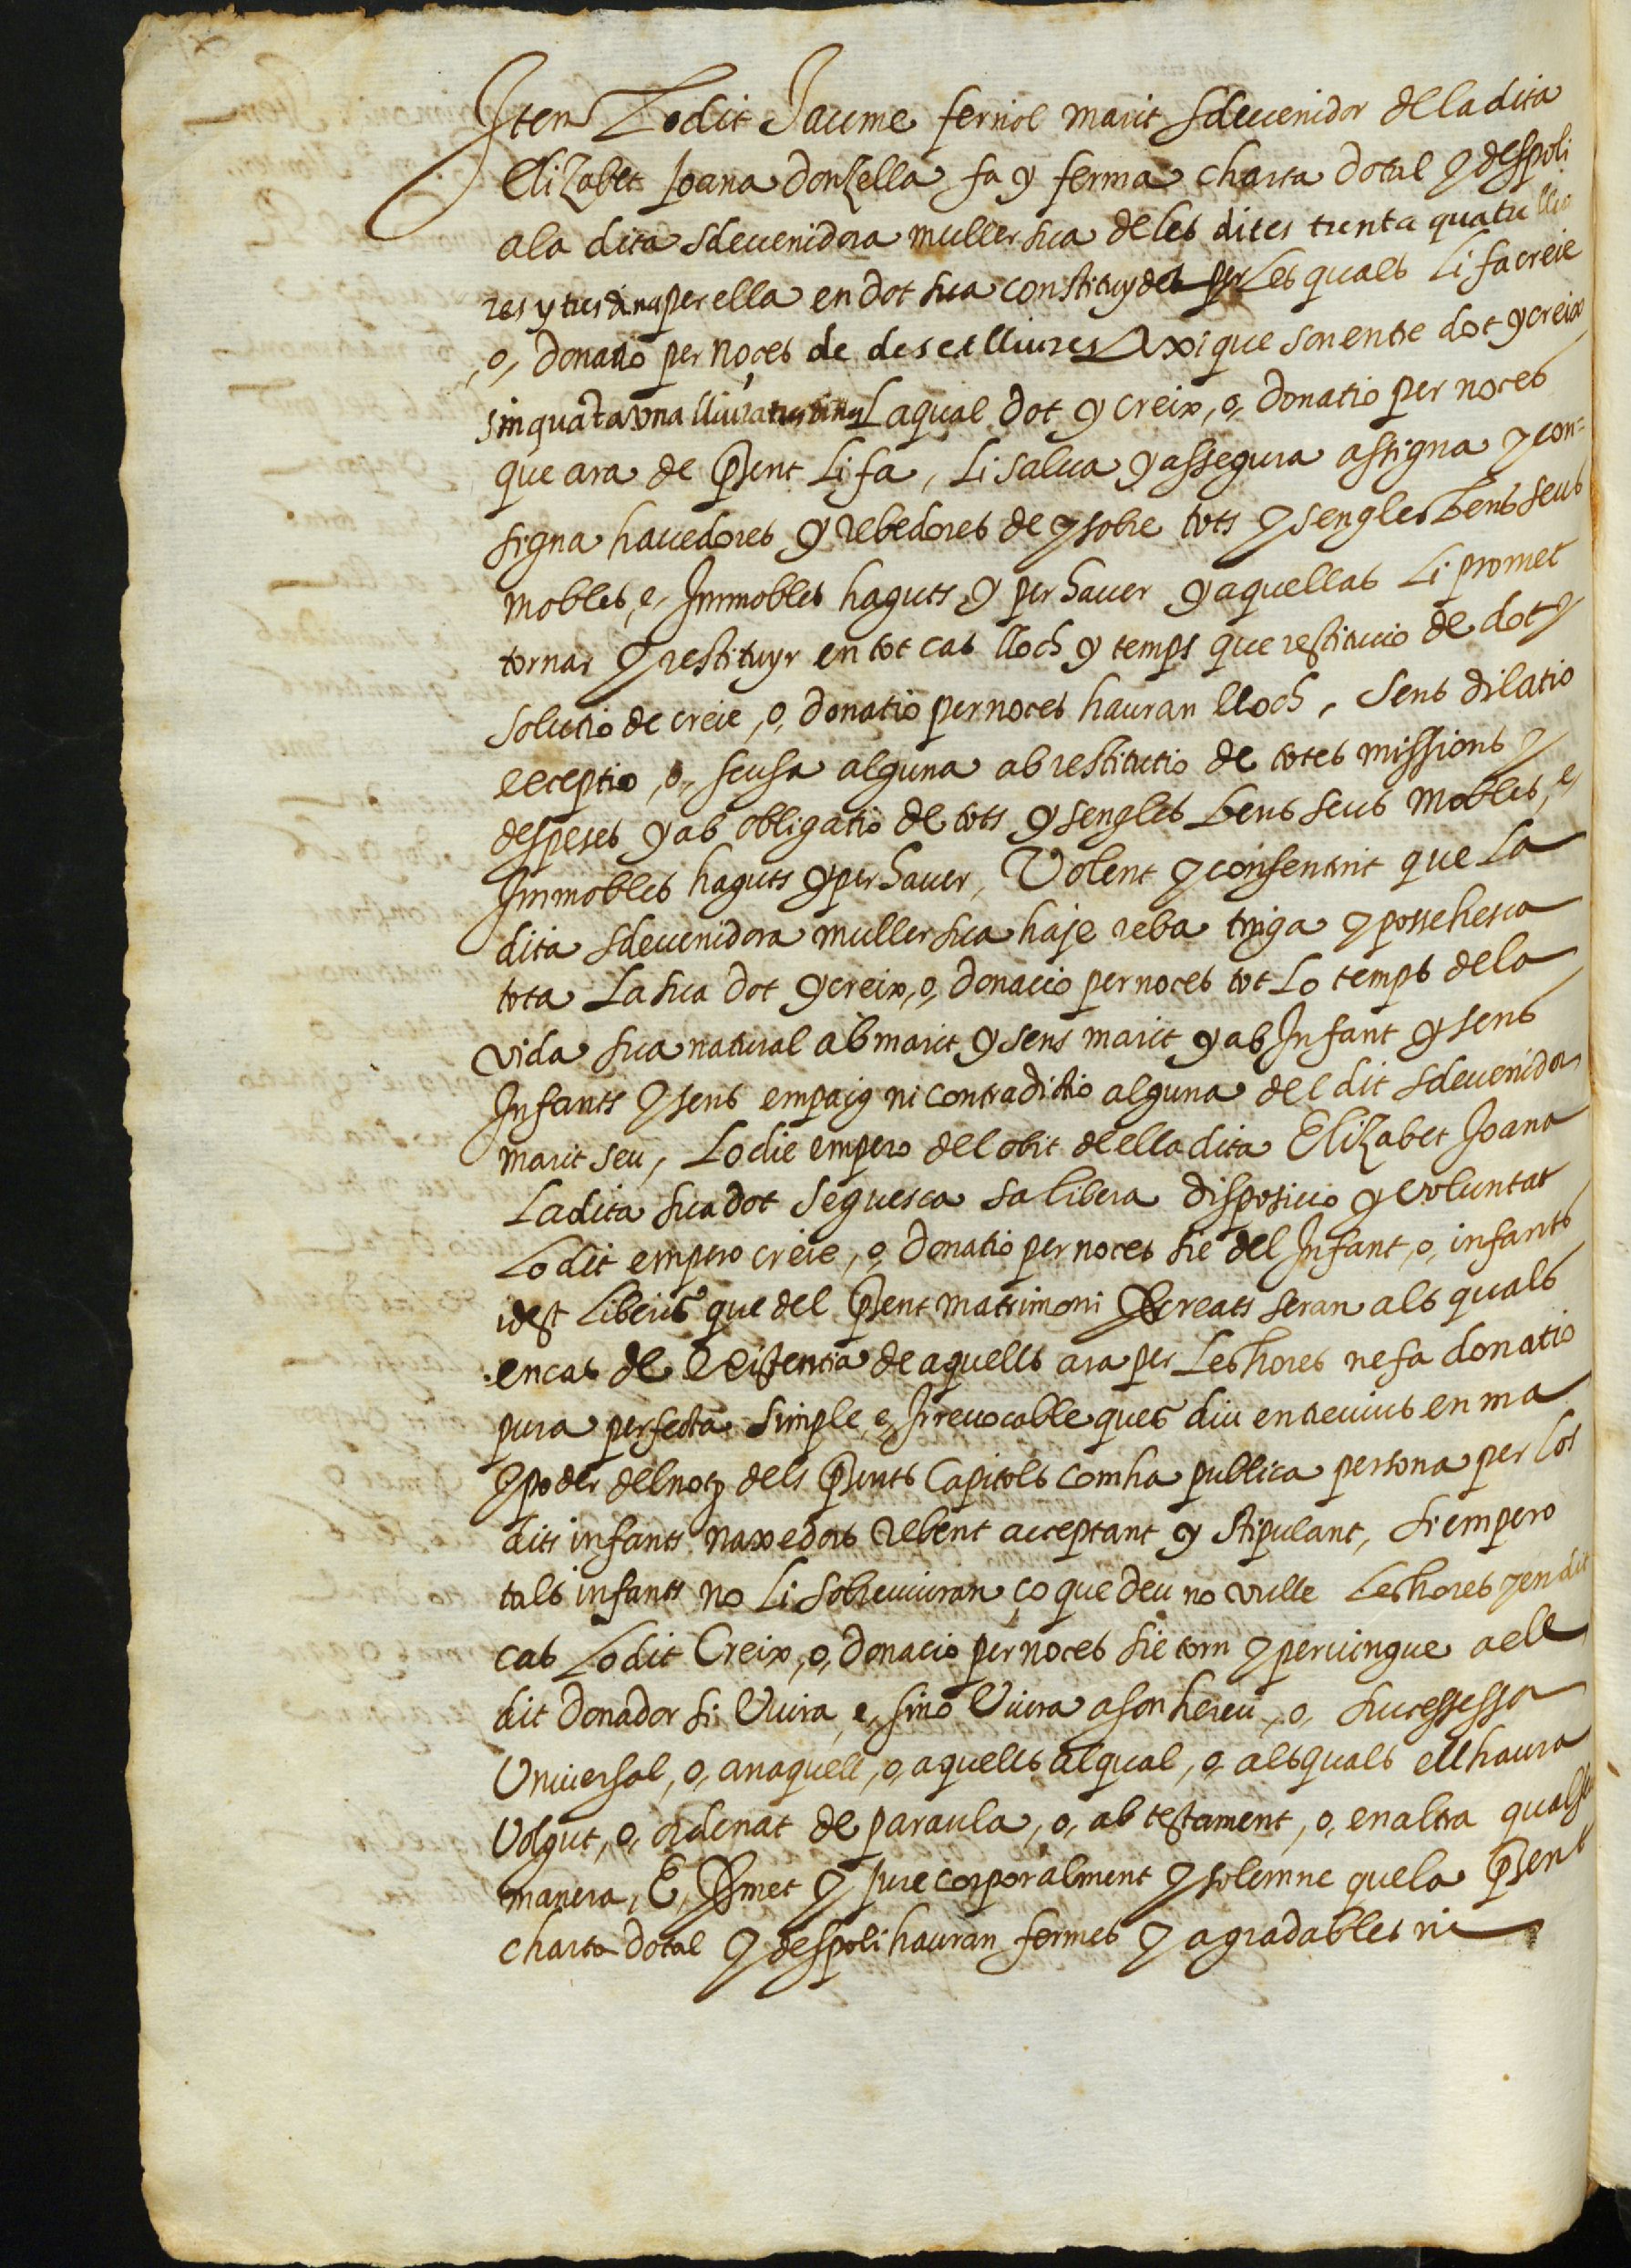 Item Lo dit Jaume ferriol marit sdeuenidor de la dita
Elizabet Joana donzella fa y ferma charta dotal y despoli
a la dita sdeuenidora muller sua de les dites trenta quatre lliu
res y tres diners per ella en dot sua constituydes per Les quals Li fa creix
,o, donatio per noces de deset lliures Axi que son entre dot y creix
sinquata vna lliura tres diners La qual dot y creix ,o, donatio per noces
que ara de psent Li fa, Li salua y assegura assigna y con=
signa hauedores y rebedores de y sobre tots y sengles bens seus
mobles ,e, Immobles haguts y per hauer y aquellas Li promet
tornar y restituyr en tot cas lloch y temps que restitucio de dot y
solutio de creix ,o, donatio per noces hauran lloch, sens dilatio
exceptio ,o, scusa alguna ab restitutio de totes missions y
despeses y ab obligatio de tots y sengles bens seus mobles ,e,
Immobles haguts y per hauer, Volent y consentint que La
dita sdeuenidora muller sua haje reba tinga y possehesca
tota La sua dot y creix ,o, donacio per noces tot Lo temps de la
vida sua natural ab marit y sens marit y ab Infant y sens
Infants y sens empaig ni contradictio alguna del dit sdeuenidor
marit seu, Lo die empero del obit de ella dita Elizabet Joana
La dita sua dot seguesca sa libera disposicio y voluntat
Lo dit empero creix ,o, donatio per noces sie del Infant ,o, infants
idest Liberis que del psent matrimoni pcreats seran als quals
en cas de existentia de aquells ara per Leshores ne fa donatio
pura perfecta simple ,e, Irreuocable ques diu entreuius en ma
y poder del noty dels psents Capitols com ha publica persona per los
dits infants naxedors rebent acceptant y stipulant, si empero
tals infants no Li sobreuiuran ço que deu no vulle Leshores y en dit
cas Lo dit Creix ,o, donacio per noces sie torn y peruingue a ell
dit donador si Viura ,e, sino Viura a son hereu ,o, successor
Vniuersal ,o, an aquell ,o, aquells al qual ,o, als quals ell haura
Volgut ,o, ordenat de paraula ,o, ab testament ,o, en altra qualse
manera, E, pmet y jure corporalment y solemne que la psent
charta dotal y despoli hauran fermes y agradables ni